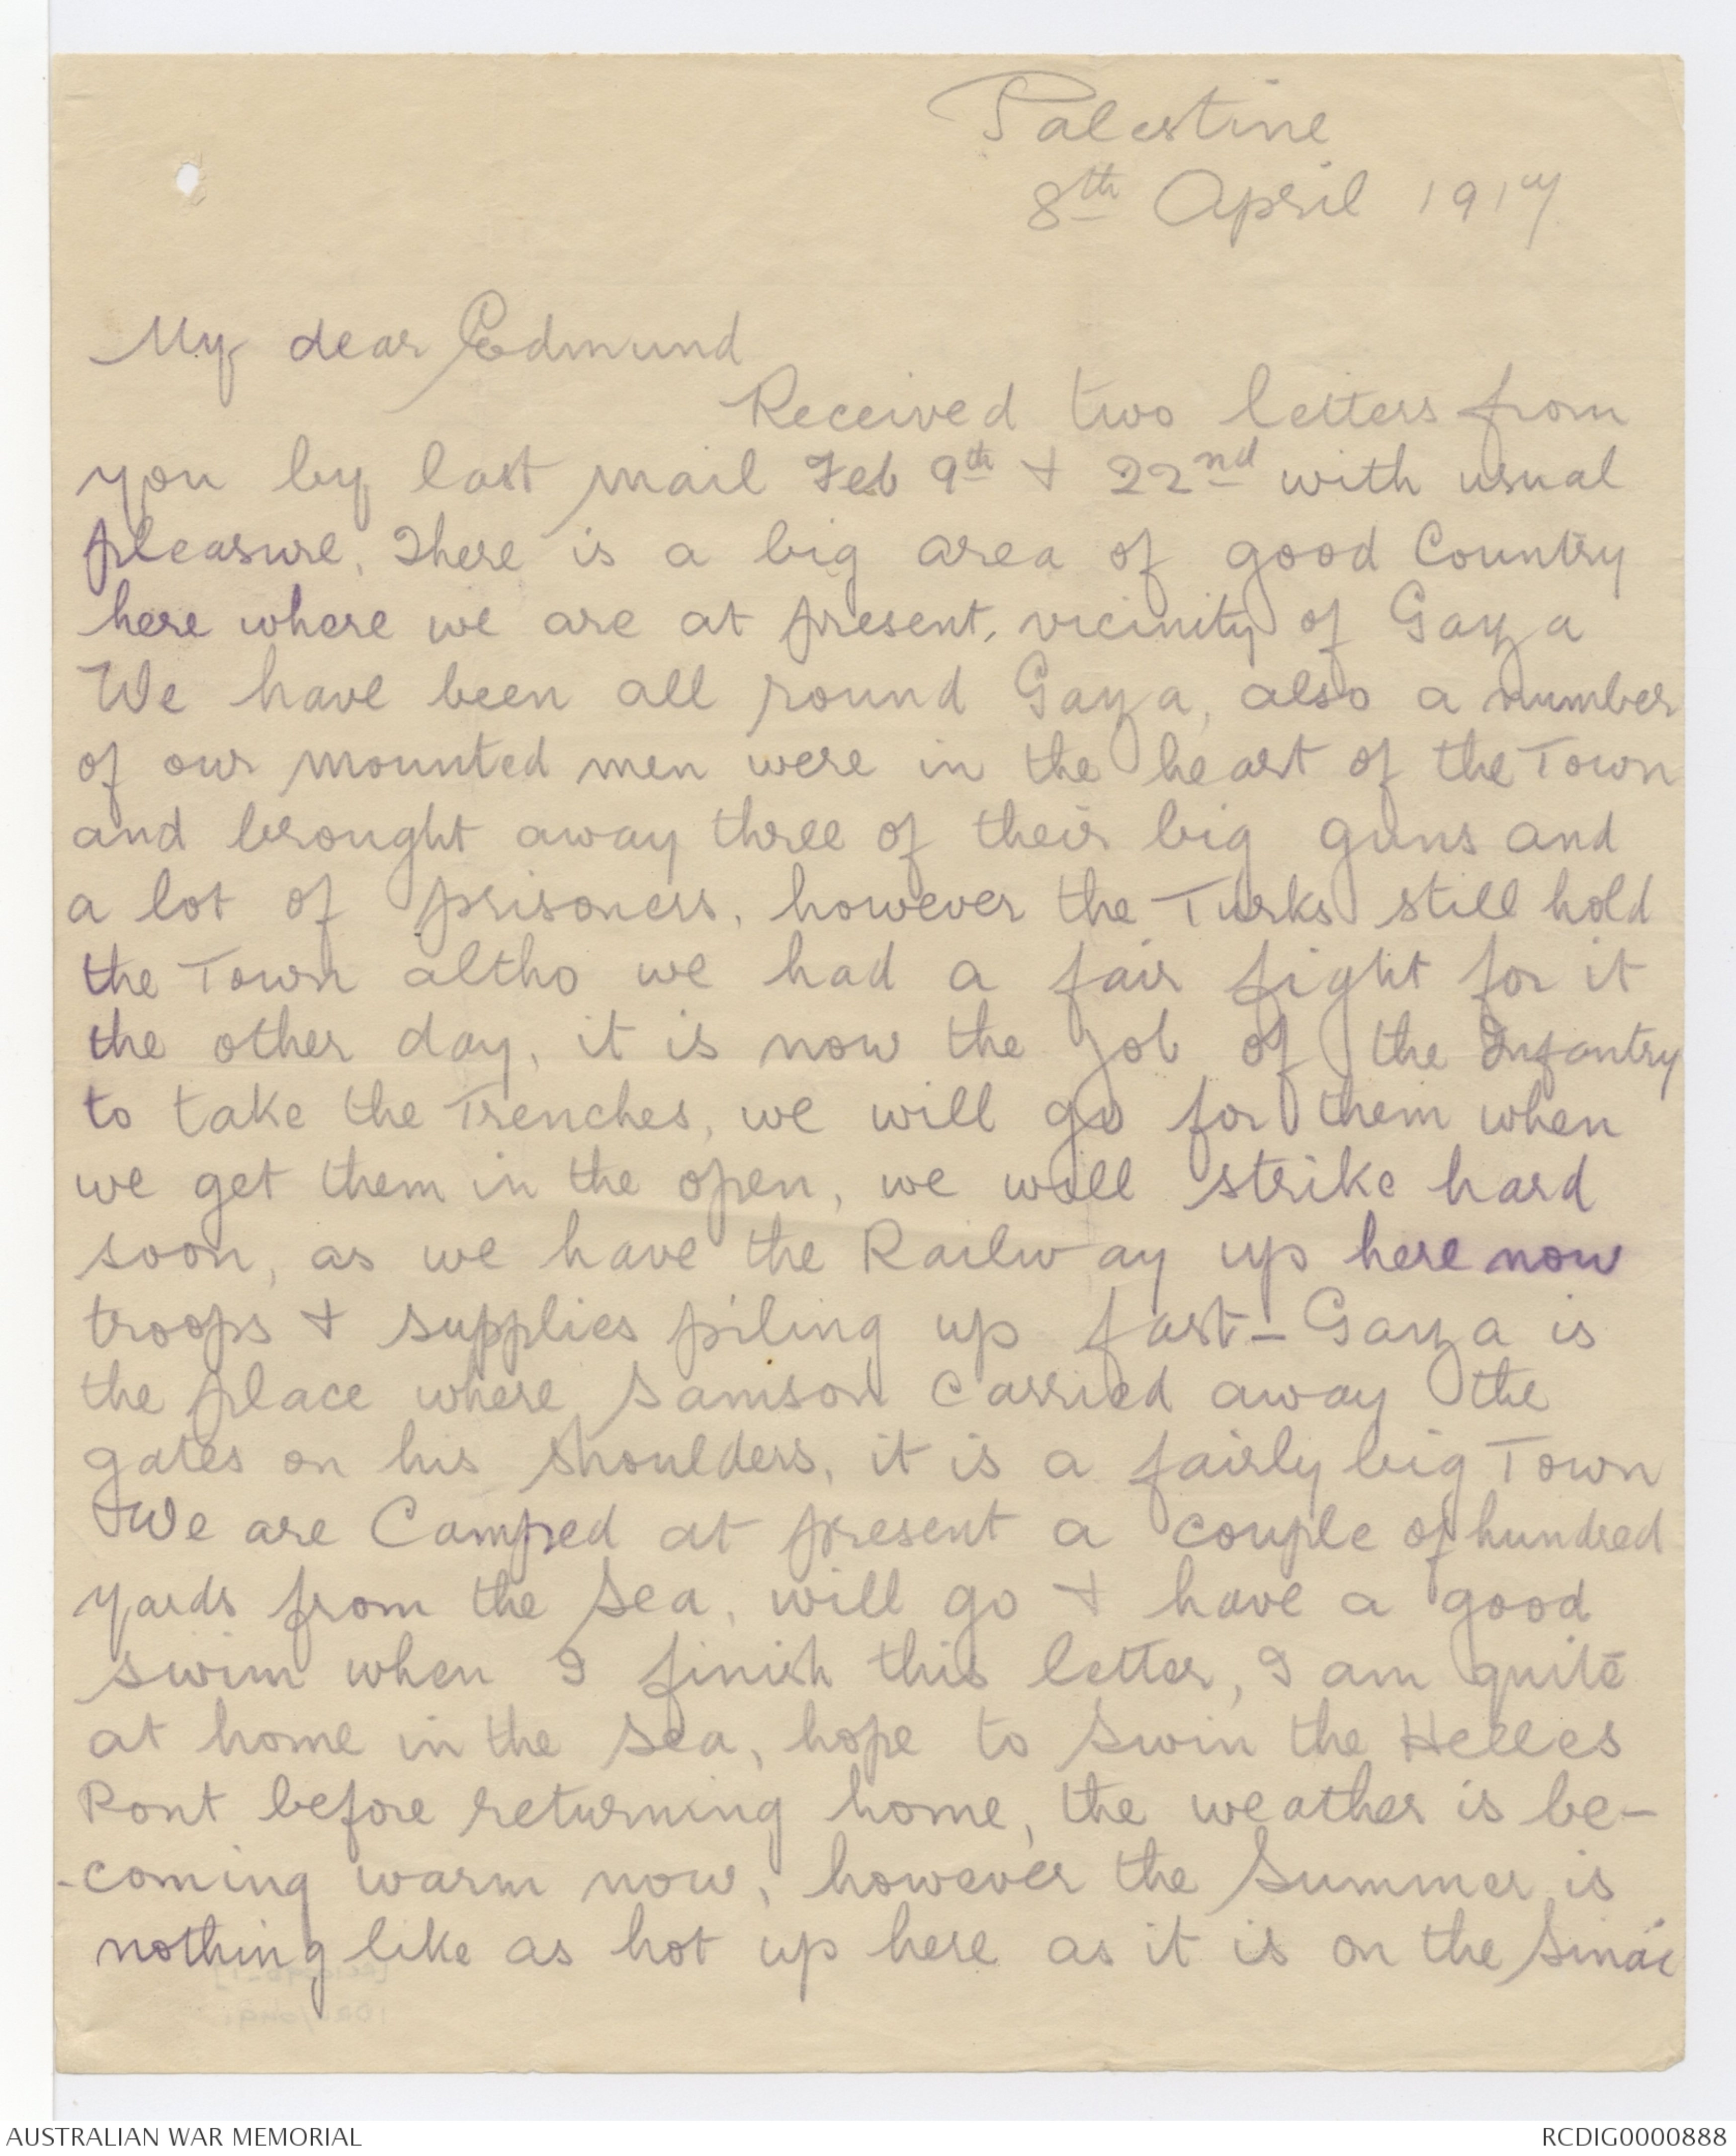 Palestine
8th April 1917
My dear Edmund
Received two letters from
you by last mail Feb 9th & 22nd with usual
pleasure, There is a big area of good Country
here where we are at present, vicinity of Gaza
We have been all round Gaza, also a number
of our mounted men were in the heart of the Town
and brought away three of their big guns and
a lot of prisoners, however the Turks still hold
the Town altho we had a fair fight for it
the other day, it is now the job of the Infantry
to take the Trenches, we will go for them when
we get them in the open, we will strike hard
soon, as we have the Railway up here now
troops & supplies piling up fast – Gaza is
the place where Samson carried away the
gates on his shoulders, it is a fairly big Town
We are Camped at present a couple of hundred
yards from the sea, will go & have a good
swim when I finish this letter, I am quite
at home in the sea, hope to swin the Helles
Pont before returning home, the weather is be-
-coming warm now, however the Summer is
nothing like as hot up here as it is on the Sinai
AUSTRALIAN WAR MEMORIAL
RCDIG0000888